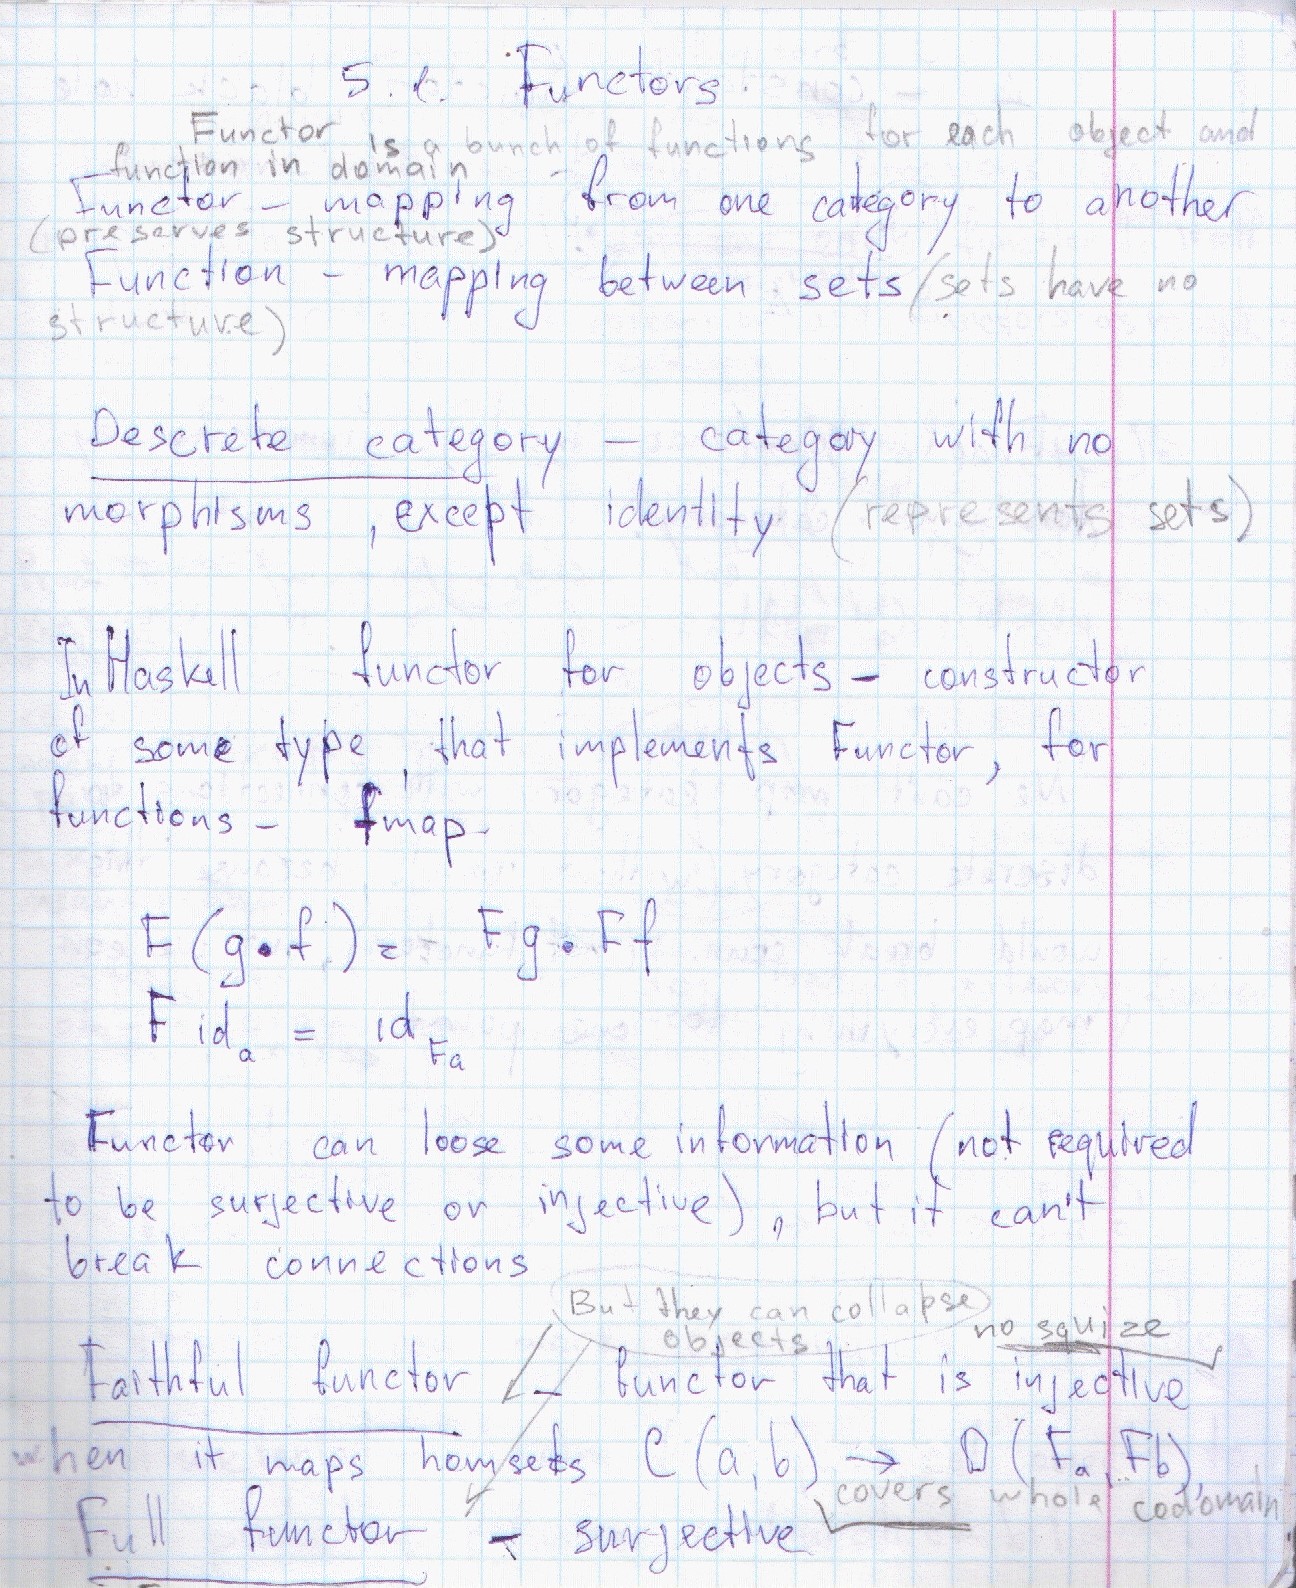 5.1. Functors.
Functor is a bunch of functions for each object and
function in domain
Functor - mapping from one category to another
(preserves structure)
Function - mapping between sets (sets have no
structure)
Descrete category - category with no
morphisms, except identity (represents sets)
In Haskell functor for objects - constructor
of some type, that implements Functor, for
functions - fmap.
F(g•f) = Fg•Ff
F id_a = id_Fa
Functor can loose some information (not required
to be surjective or injective), but it can't
break connections
But they can collapse
objects
no squize
Faithful functor - functor that is injective
when it maps homsets C(a,b) → D(Fa, Fb),
covers whole codomain
Full functor - surjective